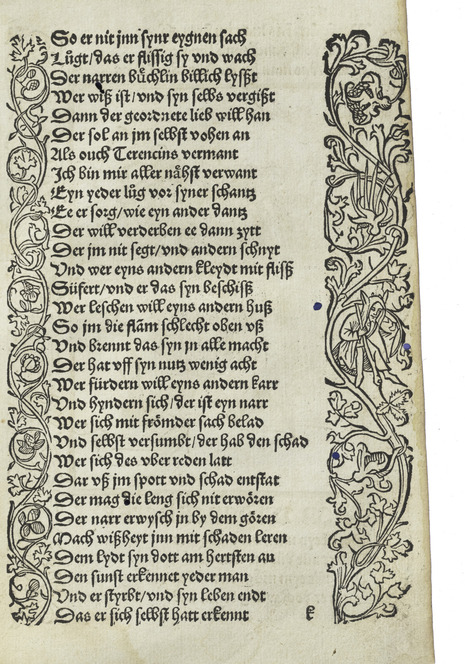 So er nit jnn synr eygnen sach
Lůgt/das er flissig sy vnd wach
Der narren büchlin billich lyszt
Wer wiß ist/vnd syn selbs vergißt
Dann der geordnete lieb will han
Der sol an jm selbst vohen an
Als ouch Terencius vermant
Jch bin mir aller nähst verwant
Eyn yeder lůg vor syner schantz
Ee er sorg/wie eyn ander dantz
Der will verderben ee dann zytt
Der jm nit segt/vnd andern schnyt
Vnd wer eyns andern kleydt mit fliß
Süfert/vnd er das syn beschiß
Wer leschen will eyns andern huß
So jm die flām schlecht oben vß
Vnd brennt das syn jn alle macht
Der hat vff syn nutz wenig acht
Wer fürdern will eyns andern karr
Vnd hyndern sich/der ist eyn narr
Wer sich mit frömder sach belad
Vnd selbst versumbt/der hab den schad
Wer sich des vber reden latt
Dar vß jm spott vnd schad entstat
Der mag die leng sich nit erwören
Der narr erwysch jn by dem gören
Mach wißheyt jnn mit schaden leren
Dem lydt syn dott am hertsten an
Den sunst erkennet yeder man
Vnd er styrbt/vnd syn leben endt
Das er sich selbst hatt erkennt
k